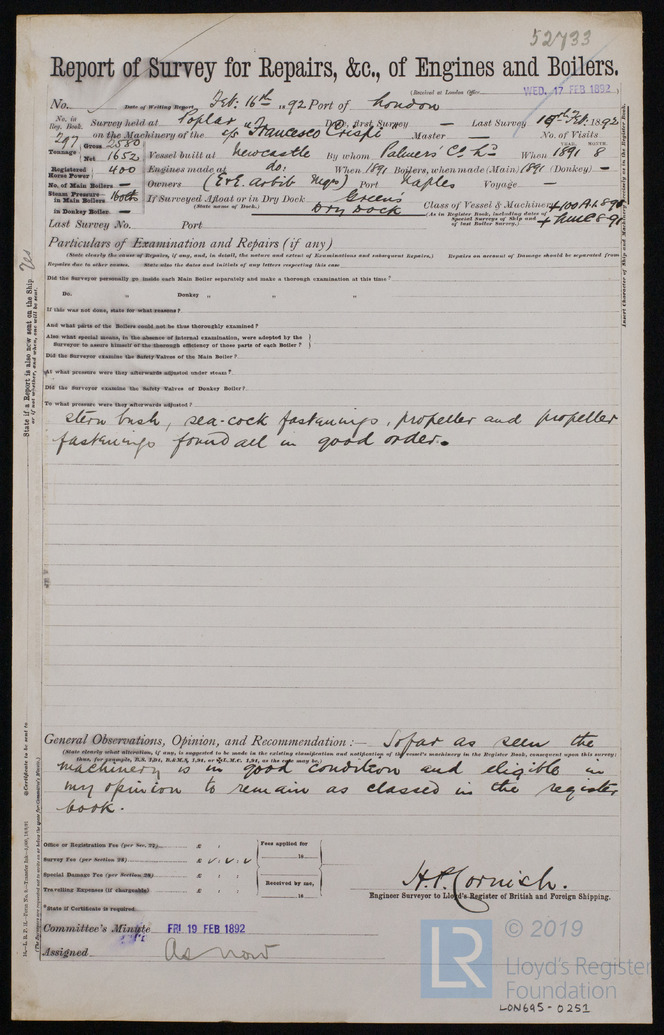 52733
Report of Survey for Repairs, &c., of Engines and Boilers.
(Received at London Office WED. 17 FEB 1892)
No. Date of Writing Report Feb: 16th 1892 Port of London
No. in Reg. Book. Survey held at Poplar Date, first Survey — Last Survey Feb. 1892
297 on the Machinery of the s/s "Francesco Crispi" Master — No. of Visits
Tonnage Gross 2580 Net 1652 Vessel built at Newcastle By whom Palmers' Co. Ld When 1891 8 YEAR. MONTH.
Registered Horse Power 400 Engines made at do: When 1891 Boilers, when made (Main) 1891 (Donkey) —
No. of Main Boilers — Owners (E & E. Arbib Negs) Port Naples Voyage —
Steam Pressure in Main Boilers 160 lbs If Surveyed Afloat or in Dry Dock Green's Class of Vessel & Machinery
in Donkey Boiler — (State name of Dock.) Dry Dock (As in Register Book, including dates of Special Surveys of Ship and of last Boiler Survey.)
Last Survey No. Port
Particulars of Examination and Repairs (if any)
(State clearly the cause of Repairs, if any, and, in detail, the nature and extent of Examinations and subsequent Repairs.) Repairs on account of Damage should be separated from
Repairs due to other causes. State also the dates and initials of any letters respecting this case
Did the Surveyor personally go inside each Main Boiler separately and make a thorough examination at this time?
Do. „ Donkey „ „ „
If this was not done, state for what reasons?
And what parts of the Boilers could not be thus thoroughly examined?
Also what special means, in the absence of internal examination, were adopted by the
Surveyor to assure himself of the thorough efficiency of those parts of each Boiler?
Did the Surveyor examine the Safety Valves of the Main Boiler?
At what pressure were they afterwards adjusted under steam?
Did the Surveyor examine the Safety Valves of Donkey Boiler?
To what pressure were they afterwards adjusted?
stern bush, sea-cock fastenings, propeller and propeller
fastenings found all in good order.
General Observations, Opinion, and Recommendation:— So far as seen the
(State clearly what alteration, if any, is suggested to be made in the existing classification and notification of the vessel's machinery in the Register Book, consequent upon this survey;
machinery is in good condition and eligible in
my opinion to remain as classed in the register
book.
Office or Registration Fee (per Sec. 27) £ : :
Survey Fee (per Section 28) £
Special Damage Fee (per Section 28) £ : :
Travelling Expenses (if chargeable) £ : :
Fees applied for
18
Received by me,
18
H. P. Cornish.
Engineer Surveyor to Lloyd's Register of British and Foreign Shipping.
*State if Certificate is required
Committee's Minute FRI 19 FEB 1892
Assigned As now
State if a Report is also now sent on the Ship Yes
© 2019
LR
Lloyd's Register
Foundation
LON695-0251